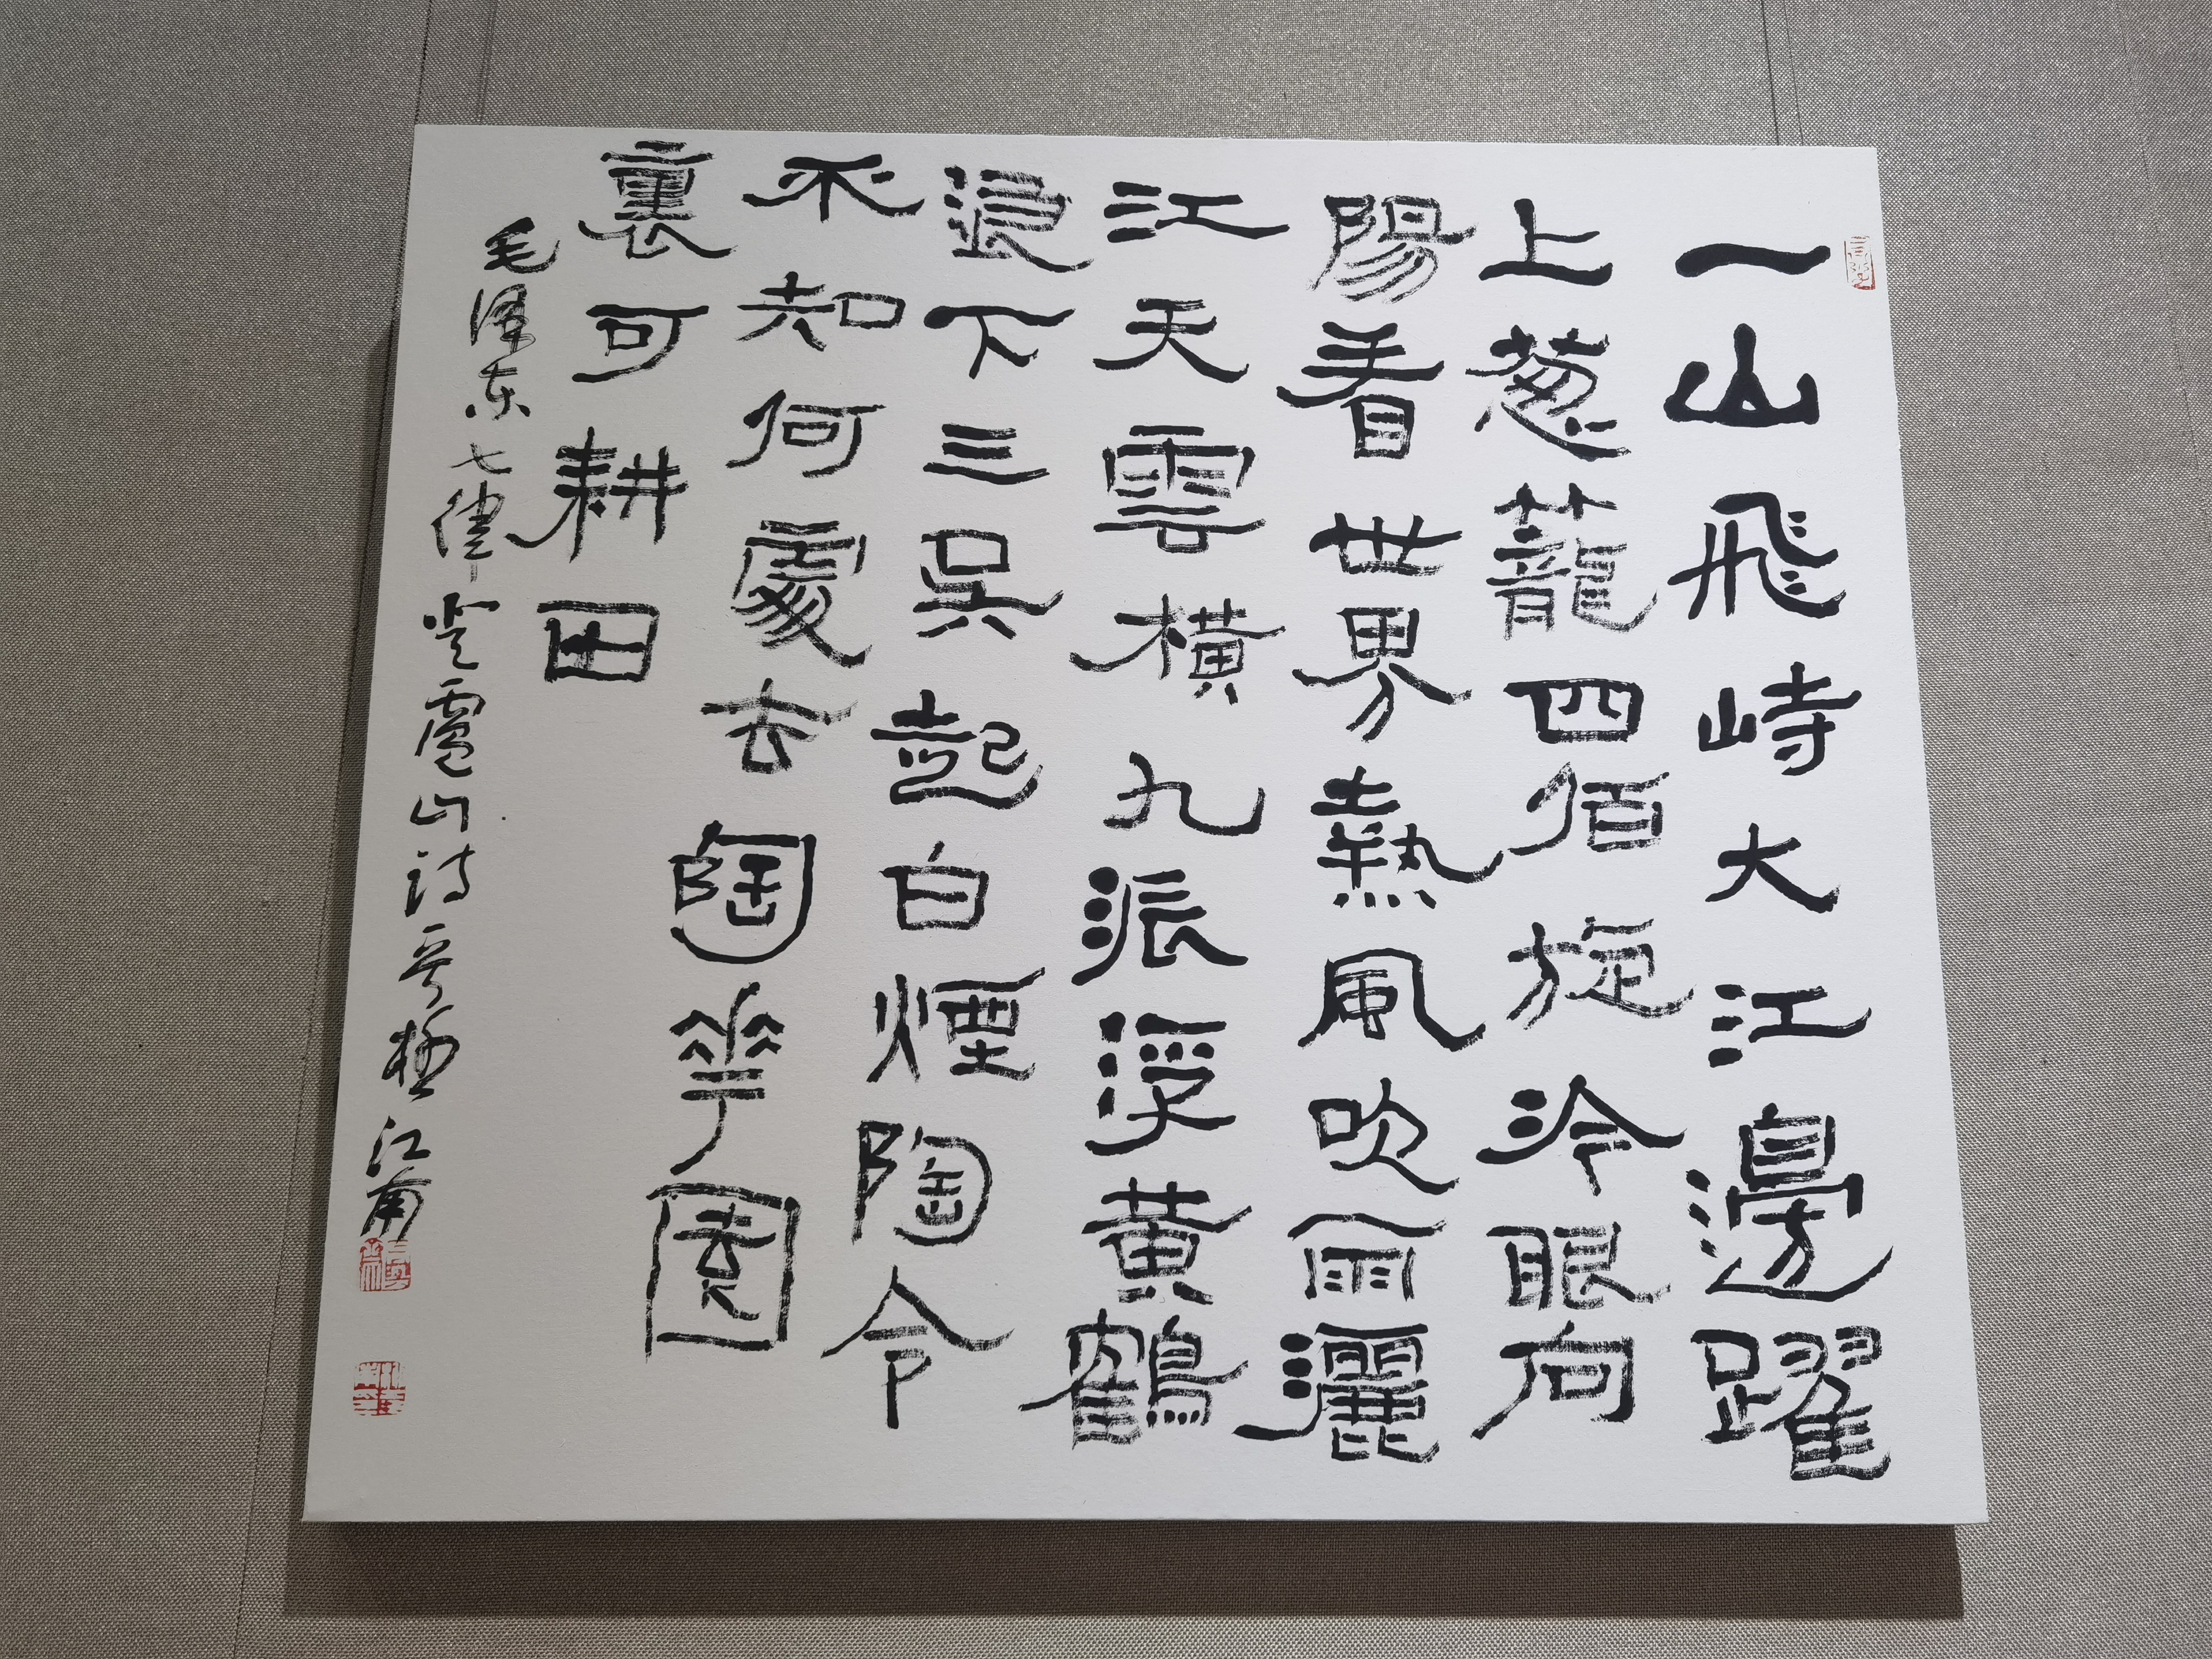 一山飛峙大江邊躍
上葱蘢四佰旋冷眼向
陽看世界熱風吹雨灑
江天雲橫九派浮黃鶴
浪下三吳起白煙陶令
不知何處去陶華園
裏可耕田
毛澤东七律登廬山詩 於江南